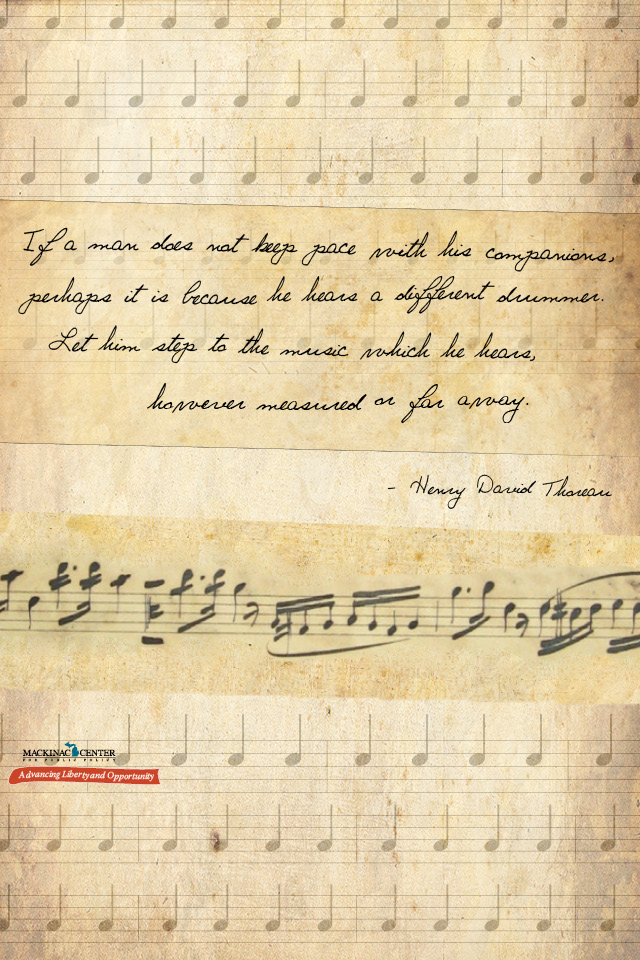 If a man does not keep pace with his companions,
perhaps it is because he hears a different drummer.
Let him step to the music which he hears,
however measured or far away.
- Henry David Thoreau
MACKINAC CENTER
FOR PUBLIC POLICY
Advancing Liberty and Opportunity